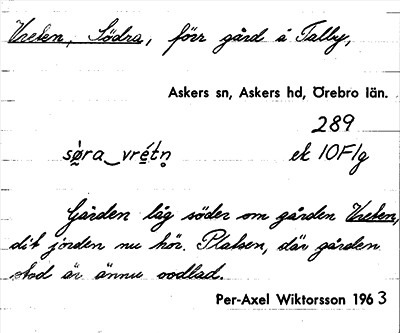 Vreten, Södra, förr gård å Tälby,
Askers sn, Askers hd, Örebro län.
289
sø̀ra vrétn̥ ek 10F1g
Gården låg söder om gården Vreten,
dit jorden nu hör. Platsen, där gården
stod är ännu oodlad.
Per-Axel Wiktorsson 1963